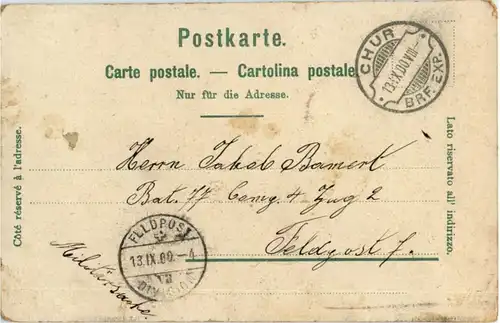 Postkarte.
Carte postale. — Cartolina postale.
Nur für die Adresse.
Côté réservé à l'adresse.
Lato riservato all' indirizzo.
CHUR
13.IX.00.VIII—
BRF. EXP.
Herrn Jakob Bamert
Bat. 77 Comp. 4 Zug 2
Feldpost 7.
Militärkarte.
FELDPOST
13.IX.00.—4
DIVISION